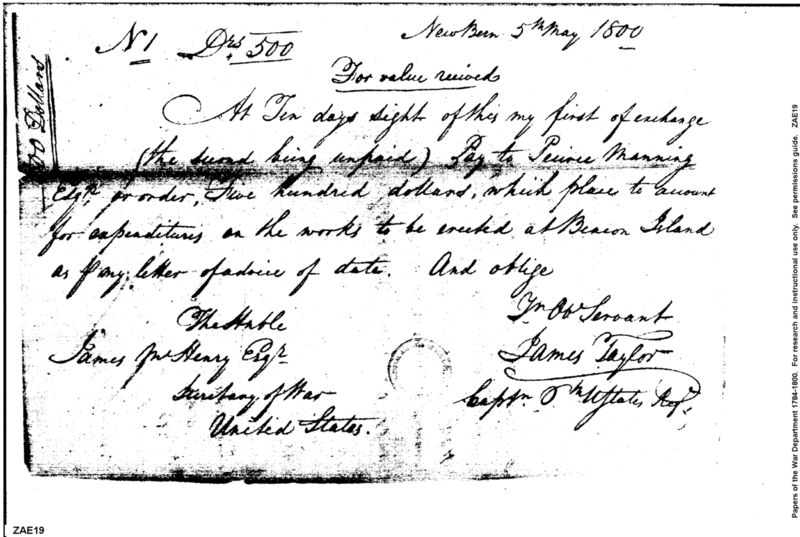 No 1 Drs 500 New Bern 5th May 1800
500 Dollars
For value reeived
At Ten days sight of this my first of exchange
(the second being unpaid) Pay to Peirce Manning
Esqr. or order, Five hundred dollars, which place to account
for expenditures on the works to be erected at Beacon Island
as pr my letter of advice of date. And oblige
Yr Obt Servant
The Honble
James McHenry Esqr.
James Taylor
Secretary of War
Captn. United States.
United States.
ZAE19
Papers of the War Department 1784-1800. For research and instructional use only. See permissions guide. ZAE19